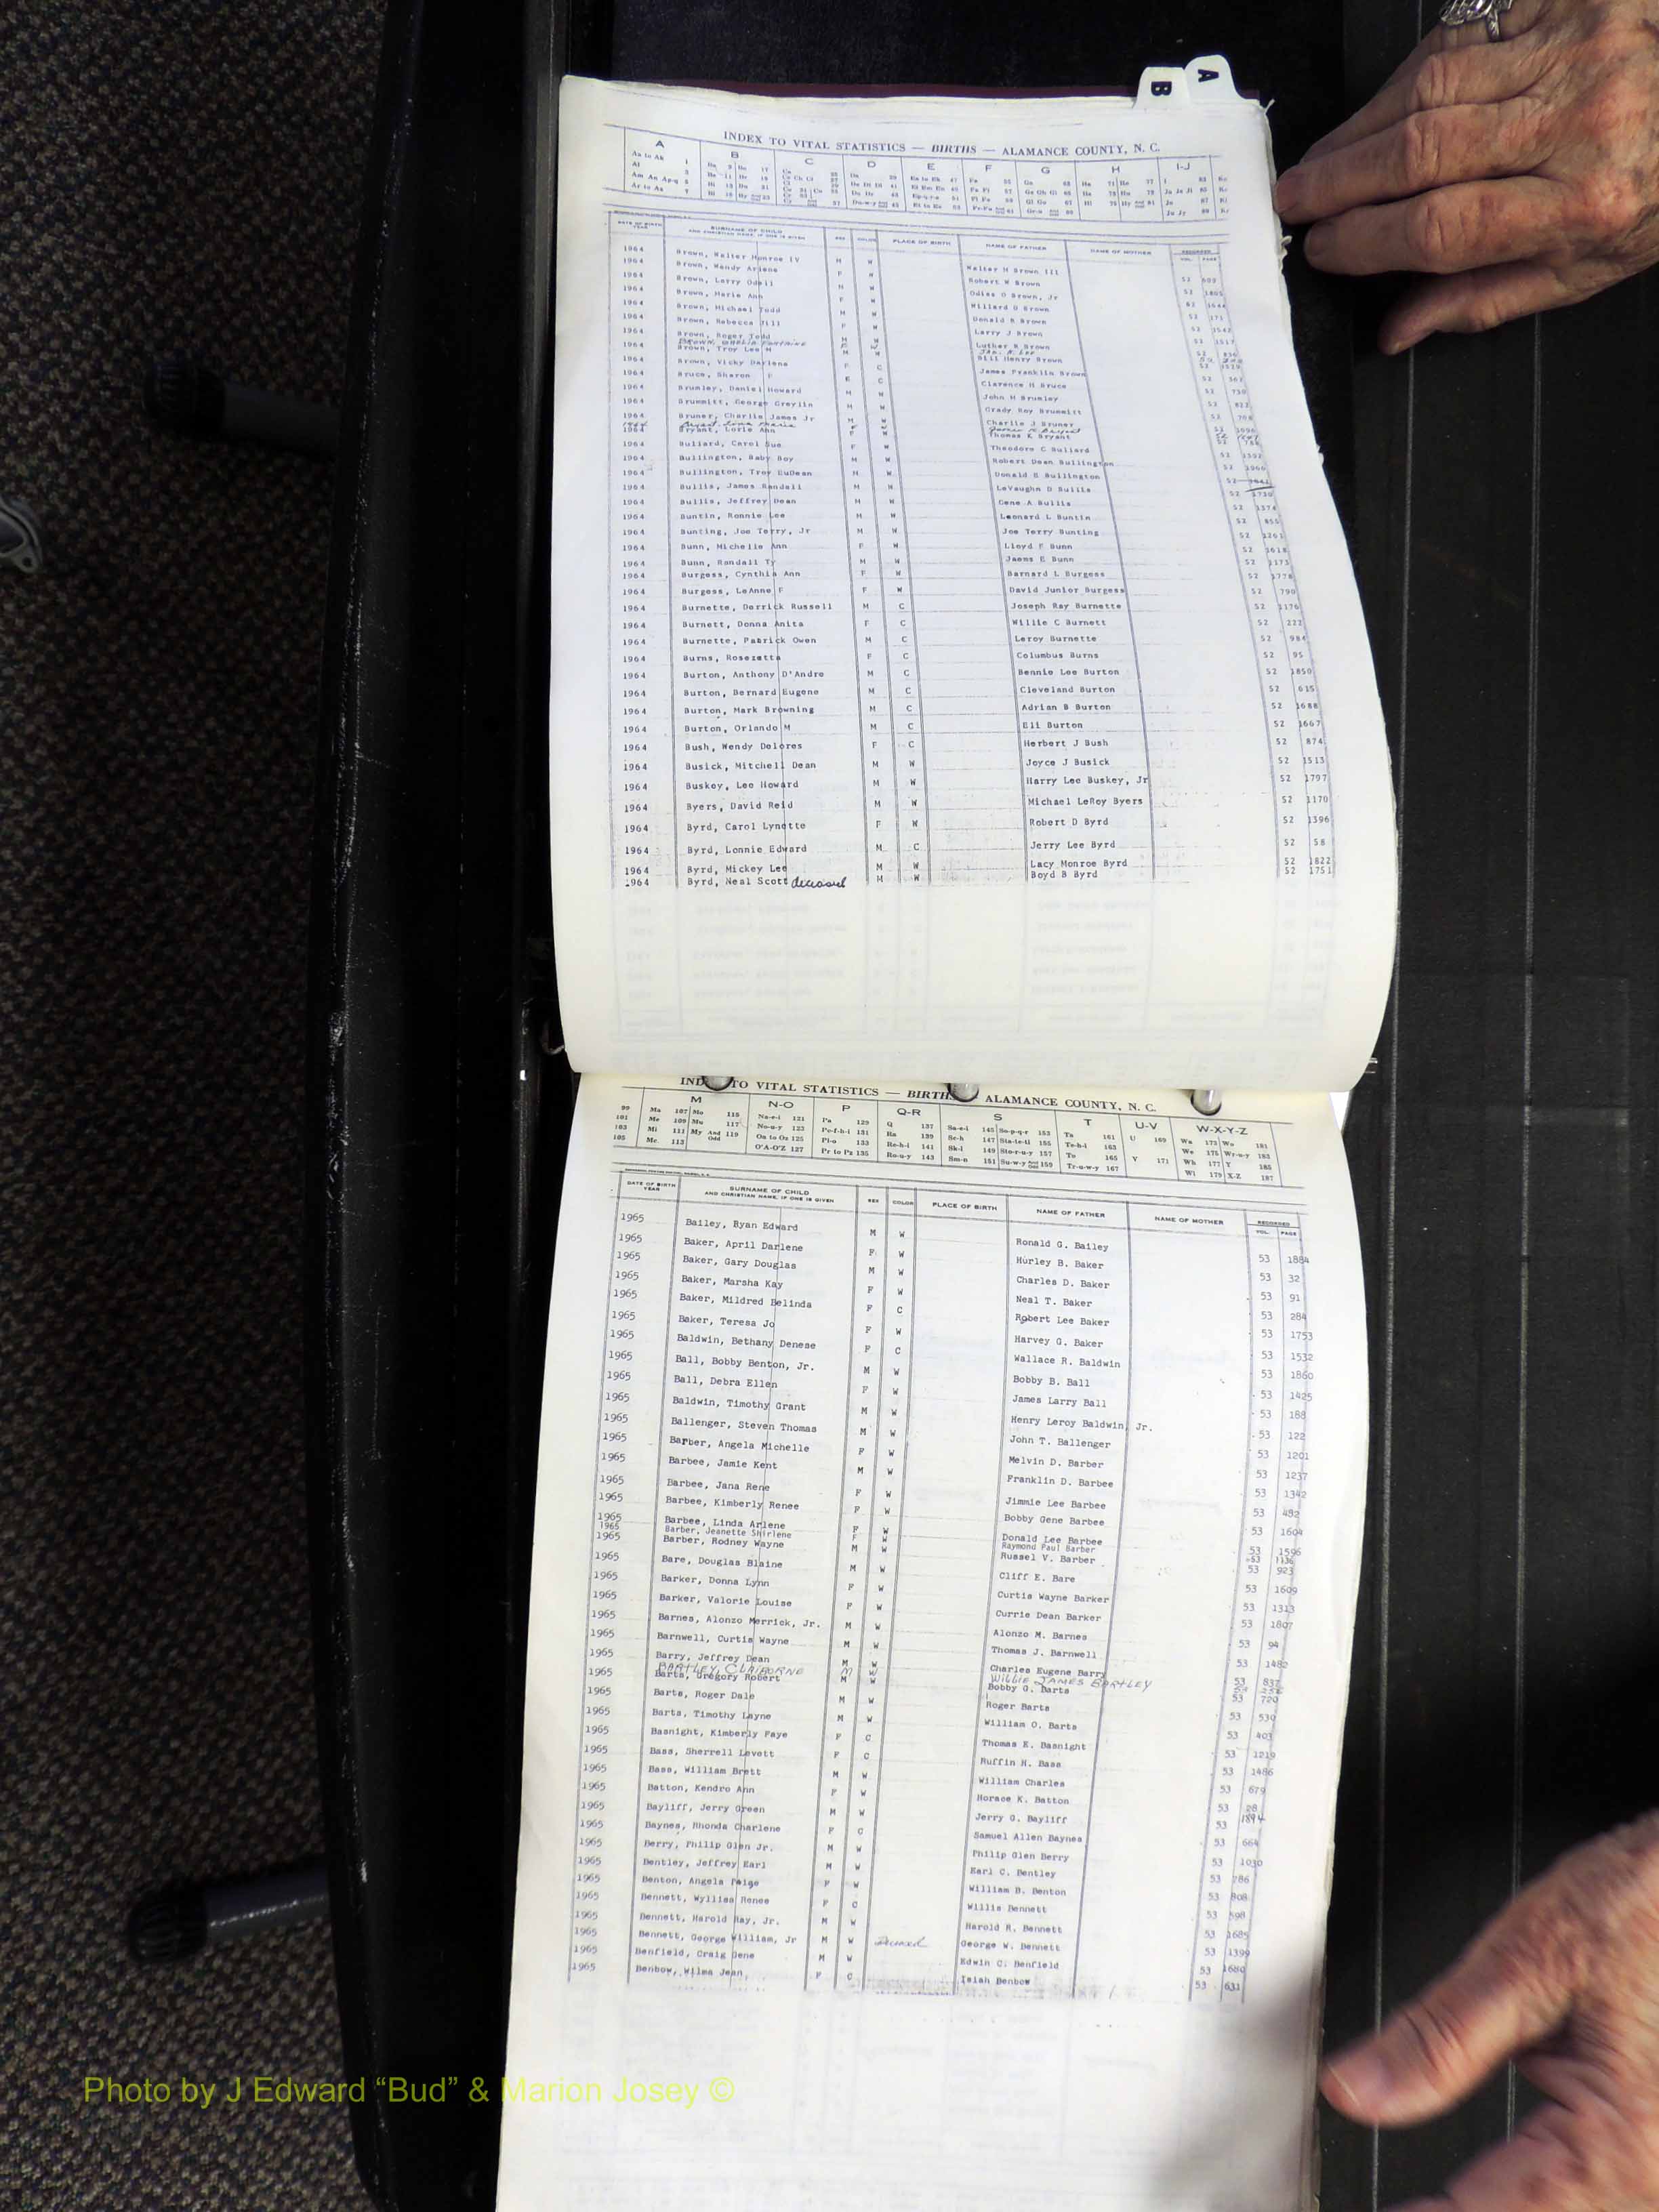 A
B
INDEX TO VITAL STATISTICS — BIRTHS — ALAMANCE COUNTY, N. C.
A B C D E F G H I-J
DATE OF BIRTH YEAR SURNAME OF CHILD AND CHRISTIAN NAME, IF ONE IS GIVEN SEX COLOR PLACE OF BIRTH NAME OF FATHER NAME OF MOTHER RECORDED VOL. PAGE
1964 Brown, Walter Monroe IV M W Walter M Brown III 52
1964 Brown, Wendy Arlene F W Robert W Brown 52
1964 Brown, Larry Odell W Odise O Brown, Jr
1964 Brown, Marie Ann F W Willard D Brown 52 171
1964 Brown, Michael Todd M W Donald Brown 52 1542
1964 Brown, Rebecca Jill F W Larry J Brown 52 1517
1964 Brown, Roger Todd M W Luther Brown 52
1964 Brown, Troy Lee M W Bill Henry Brown 52
1964 Brown, Vicky Darlene F C James Franklin Brown 52
1964 Bruce, Sharon F C Clarence H Bruce 52
1964 Brumley, Daniel Howard M W John H Brumley 52
1964 Brummitt, George Greylin M W Grady Roy Brummitt 52
1964 Bruner, Charlie James Jr M W Charlie J Bruner 52
1964 Bryant, Lorie Ann F W Thomas E Bryant 52
1964 Bullard, Carol Sue F W Theodore C Bullard 52 1392
1964 Bullington, Baby Boy M W Robert Dean Bullington 52
1964 Bullington, Troy EuDean M W Donald E Bullington 52
1964 Bullis, James Randall M W LeVaughn D Bullis 52 1730
1964 Bullis, Jeffrey Dean M W Gene A Bullis 52 1374
1964 Buntin, Ronnie Lee M W Leonard L Buntin 52 855
1964 Bunting, Joe Terry, Jr M W Joe Terry Bunting 52 1261
1964 Bunn, Michelle Ann F W Lloyd F Bunn 52 1618
1964 Bunn, Randall Ty M W Jaems E Bunn 52 1173
1964 Burgess, Cynthia Ann F W Barnard L Burgess 52 1778
1964 Burgess, LeAnne F F W David Junior Burgess 52 790
1964 Burnette, Derrick Russell M C Joseph Ray Burnette 52 1176
1964 Burnett, Donna Anita F C Willie C Burnett 52 222
1964 Burnette, Patrick Owen M C Leroy Burnette 52 984
1964 Burns, Rosezetta F C Columbus Burns 52 95
1964 Burton, Anthony D'Andre M C Bennie Lee Burton 52 1850
1964 Burton, Bernard Eugene M C Cleveland Burton 52 615
1964 Burton, Mark Browning M C Adrian B Burton 52 1688
1964 Burton, Orlando M M C Eli Burton 52 1667
1964 Bush, Wendy Delores F C Herbert J Bush 52 874
1964 Busick, Mitchell Dean M W Joyce J Busick 52 1513
1964 Buskey, Lee Howard M W Harry Lee Buskey, Jr 52 1797
1964 Byers, David Reid M W Michael LeRoy Byers 52 1170
1964 Byrd, Carol Lynette F W Robert D Byrd 52 1396
1964 Byrd, Lonnie Edward M C Jerry Lee Byrd 52 58
1964 Byrd, Mickey Lee M W Lacy Monroe Byrd 52 1822
1964 Byrd, Neal Scott deceased M W Boyd B Byrd 52 1751
INDEX TO VITAL STATISTICS — BIRTHS — ALAMANCE COUNTY, N. C.
M N-O P Q-R S T U-V W-X-Y-Z
DATE OF BIRTH YEAR SURNAME OF CHILD AND CHRISTIAN NAME, IF ONE IS GIVEN SEX COLOR PLACE OF BIRTH NAME OF FATHER NAME OF MOTHER RECORDED VOL. PAGE
1965 Bailey, Ryan Edward M W Ronald G. Bailey 53 1884
1965 Baker, April Darlene F W Hurley B. Baker 53 32
1965 Baker, Gary Douglas M W Charles D. Baker 53 91
1965 Baker, Marsha Kay F W Neal T. Baker 53 284
1965 Baker, Mildred Belinda F C Robert Lee Baker 53 1753
1965 Baker, Teresa Jo F W Harvey G. Baker 53 1532
1965 Baldwin, Bethany Denese F C Wallace R. Baldwin 53 1860
1965 Ball, Bobby Benton, Jr. M W Bobby B. Ball 53 1425
1965 Ball, Debra Ellen F W James Larry Ball 53 188
1965 Baldwin, Timothy Grant M W Henry Leroy Baldwin, Jr. 53 122
1965 Ballenger, Steven Thomas M W John T. Ballenger 53 1201
1965 Barber, Angela Michelle F W Melvin D. Barber 53 1237
1965 Barbee, Jamie Kent M W Franklin D. Barbee 53 1342
1965 Barbee, Jana Rene F W Jimmie Lee Barbee 53 482
1965 Barbee, Kimberly Renee F W Bobby Gene Barbee 53 1604
1965 Barbee, Linda Arlene F W Donald Lee Barbee 53 1596
1965 Barber, Jeanette Shirlene F W Raymond Paul Barber 53 1136
1965 Barber, Rodney Wayne M W Russel V. Barber 53 923
1965 Bare, Douglas Blaine M W Cliff E. Bare 53 1609
1965 Barker, Donna Lynn F W Curtis Wayne Barker 53 1313
1965 Barker, Valorie Louise F W Currie Dean Barker 53 1807
1965 Barnes, Alonzo Merrick, Jr. M W Alonzo M. Barnes 53 94
1965 Barnwell, Curtis Wayne M W Thomas J. Barnwell 53 1482
1965 Barry, Jeffrey Dean M W Charles Eugene Barry 53 837
BARTLEY, CLAIBORNE M W WILLIE JAMES BARTLEY 53
1965 Barts, Gregory Robert M W Bobby G. Barts 53 720
1965 Barts, Roger Dale M W Roger Barts 53 530
1965 Barts, Timothy Layne M W William O. Barts 53 403
1965 Basnight, Kimberly Faye F C Thomas E. Basnight 53 1219
1965 Bass, Sherrell Levett F C Ruffin H. Bass 53 1486
1965 Bass, William Brett M W William Charles 53 679
1965 Batton, Kendro Ann F W Horace K. Batton 53 28
1965 Bayliff, Jerry Green M W Jerry G. Bayliff 53 1894
1965 Baynes, Rhonda Charlene F C Samuel Allen Baynes 53 664
1965 Berry, Philip Glen Jr. M W Philip Glen Berry 53 1030
1965 Bentley, Jeffrey Earl M W Earl C. Bentley 53 786
1965 Benton, Angela Paige F W William B. Benton 53 808
1965 Bennett, Wyllisa Renee F C Willis Bennett 53 598
1965 Bennett, Harold Ray, Jr. M W Harold R. Bennett 53 1685
1965 Bennett, George William, Jr M W Deceased George W. Bennett 53 1399
1965 Benfield, Craig Gene M W Edwin C. Benfield 53 1680
1965 Benbow, Wilma Jean, F C Isiah Benbow 53 631
Photo by J Edward “Bud” & Marion Josey ©